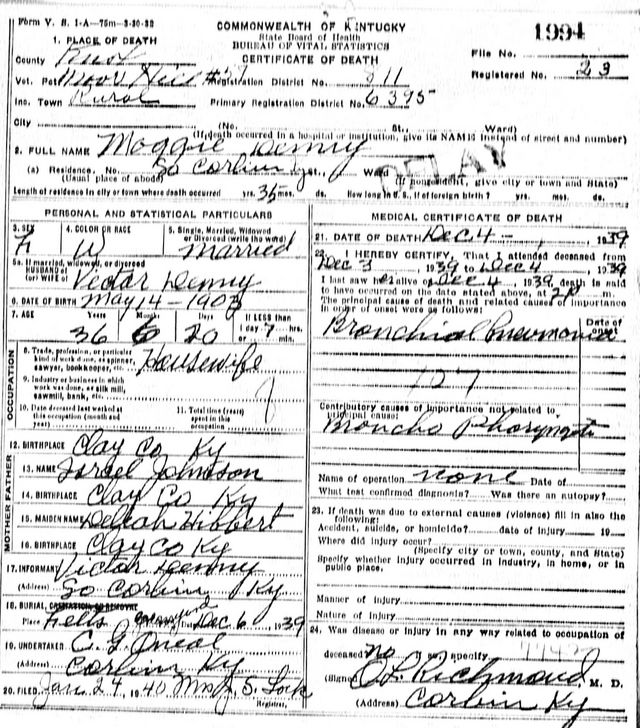 Form V. S. 1-A-75m-3-30-32
COMMONWEALTH OF KENTUCKY
State Board of Health
BUREAU OF VITAL STATISTICS
CERTIFICATE OF DEATH
1994
File No.
Registered No. 23
1. PLACE OF DEATH
County Knox
Vot. Pct. Registration District No. 511
Inc. Town Rural Primary Registration District No. 6395
City (No. St., Ward)
(If death occurred in a hospital or institution, give its NAME instead of street and number)
2. FULL NAME Maggie Denny
(a) Residence. No. So Corbin Ky St., Ward
(Usual place of abode) (If nonresident, give city or town and State)
Length of residence in city or town where death occurred yrs. 35 mos. ds. How long in U. S., if of foreign birth? yrs. mos. ds.
PERSONAL AND STATISTICAL PARTICULARS
3. SEX F
4. COLOR OR RACE W
5. Single, Married, Widowed or Divorced (write the word) Married
5a. If married, widowed, or divorced
HUSBAND of
(or) WIFE of Victor Denny
6. DATE OF BIRTH May 14-1903
7. AGE Years Months Days If LESS than
36 6 20 1 day, hrs. or min.
OCCUPATION
8. Trade, profession, or particular kind of work done, as spinner, sawyer, bookkeeper, etc. Housewife
9. Industry or business in which work was done, as silk mill, sawmill, bank, etc.
10. Date deceased last worked at this occupation (month and year)
11. Total time (years) spent in this occupation
12. BIRTHPLACE Clay Co Ky
MOTHER FATHER
13. NAME Israel Johnson
14. BIRTHPLACE Clay Co Ky
15. MAIDEN NAME Delilah Hibbert
16. BIRTHPLACE Clay Co Ky
17. INFORMANT Victor Denny
(Address) So Corbin Ky
18. BURIAL, CREMATION OR REMOVAL
Place Felts Date Dec 6, 1939
19. UNDERTAKER C. G. Oneal
(Address) Corbin Ky
20. FILED Jan 24, 1940
Registrar.
MEDICAL CERTIFICATE OF DEATH
21. DATE OF DEATH Dec 4 - , 1939
22. I HEREBY CERTIFY, That I attended deceased from
Dec 3, 1939 to Dec 4, 1939
I last saw her alive on Dec 4, 1939, death is said
to have occurred on the date stated above, at 2 P m.
The principal cause of death and related causes of importance
in order of onset were as follows: Date of onset
Bronchial Pneumonia
107
Contributory causes of importance not related to
principal cause:
Broncho
Name of operation none Date of
What test confirmed diagnosis? Was there an autopsy?
23. If death was due to external causes (violence) fill in also the
following:
Accident, suicide, or homicide? date of injury 19
Where did injury occur?
(Specify city or town, county, and State)
Specify whether injury occurred in industry, in home, or in
public place.
Manner of injury
Nature of injury
24. Was disease or injury in any way related to occupation of
deceased? No If so, specify
(Signed) O L Richmond, M. D.
(Address) Corbin Ky